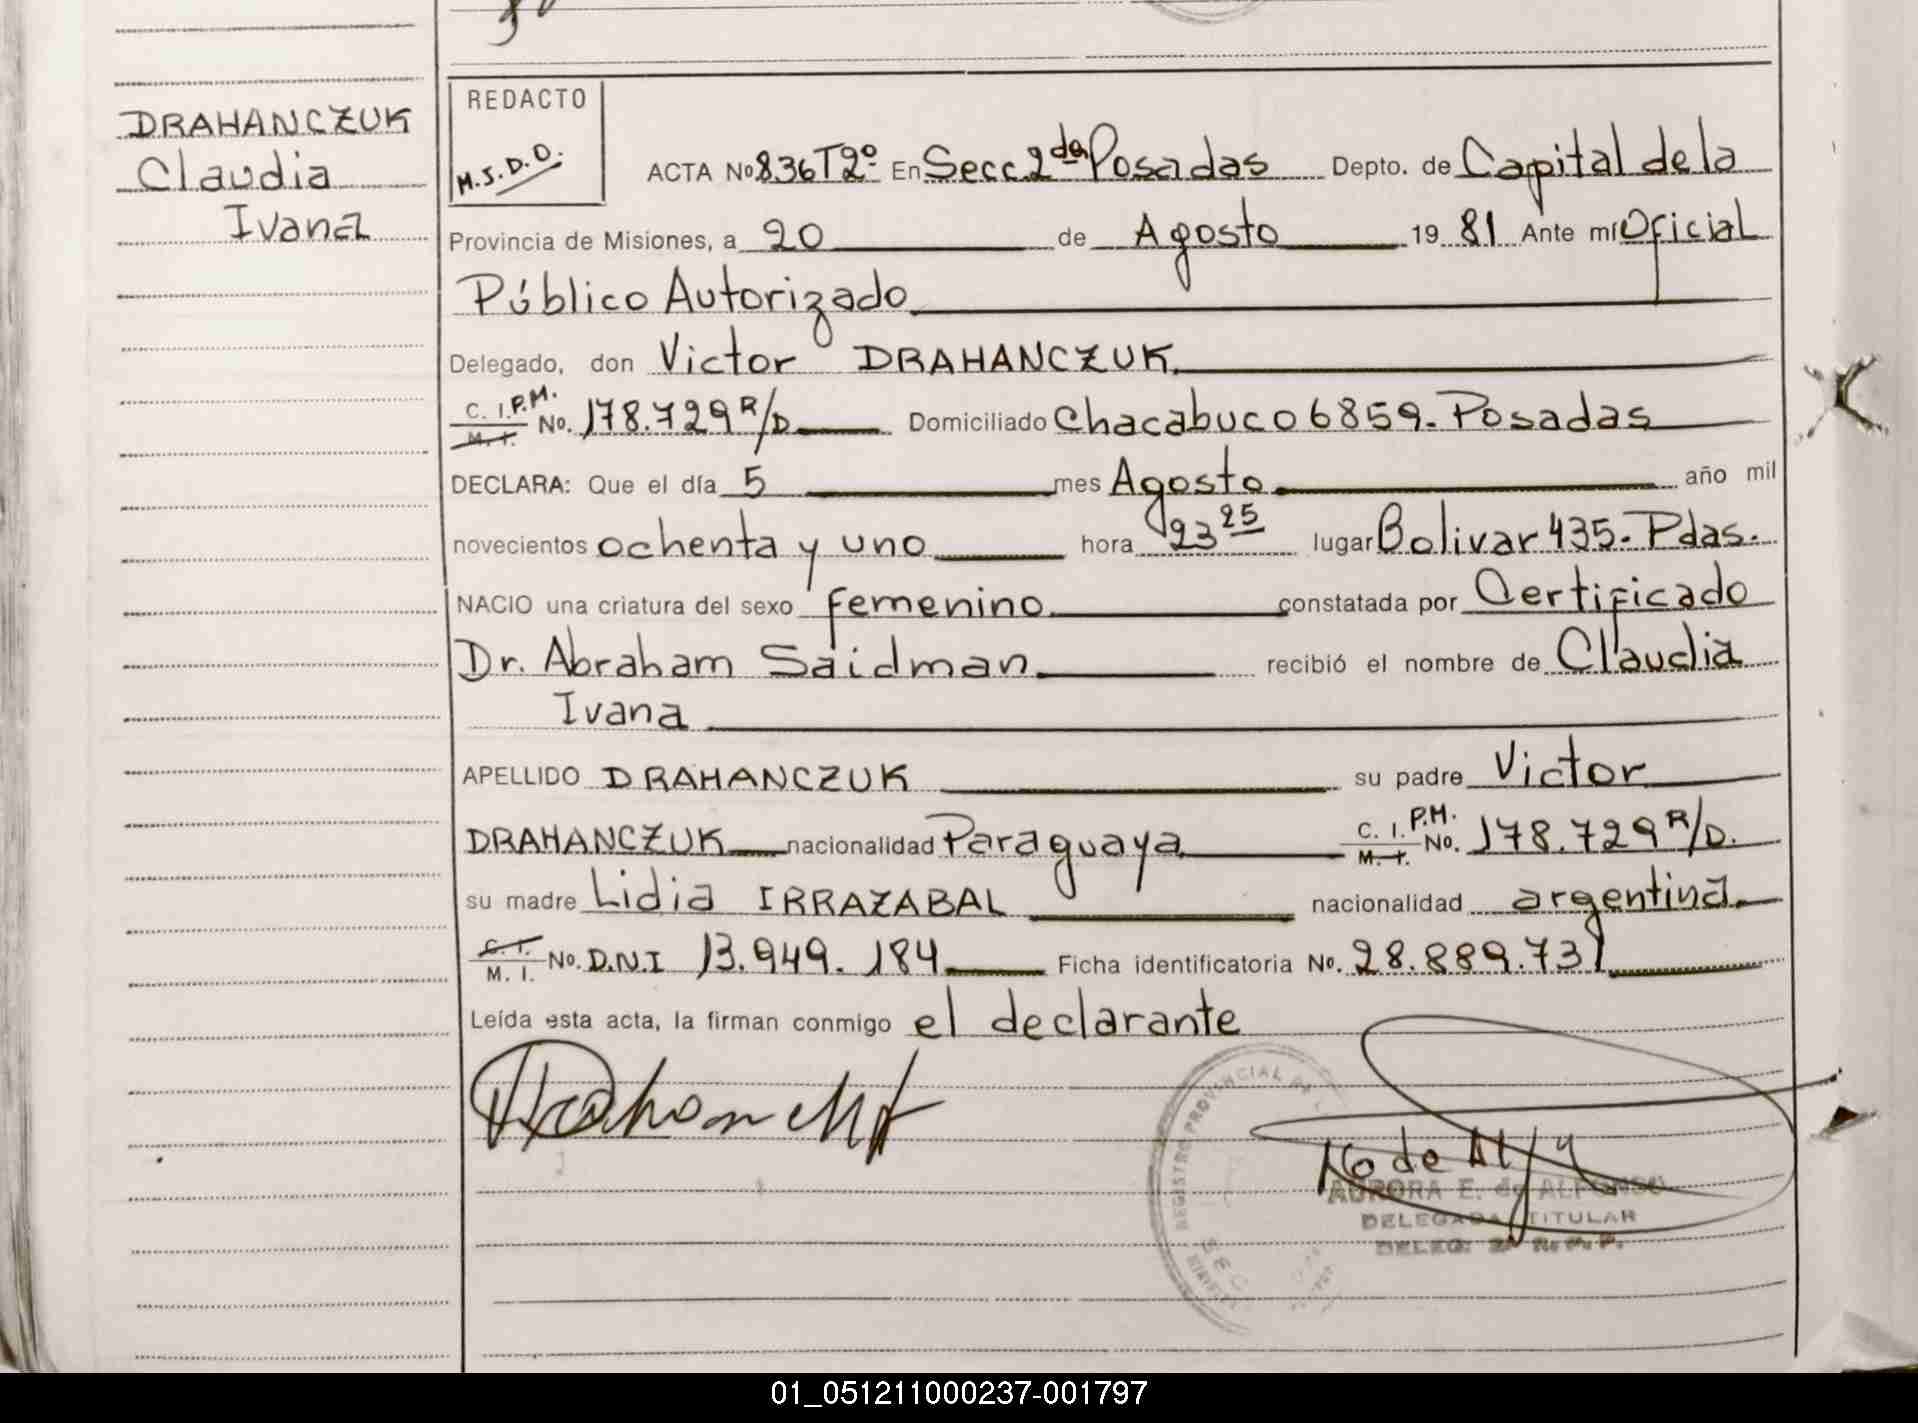 DRAHANCZUK
Claudia
Ivana
REDACTO
M.S.D.O.
ACTA No 836 Tº2º En Secc. 2da Posadas Depto. de Capital de la
Provincia de Misiones, a 20 de Agosto 19 81 Ante mí Oficial
Público Autorizado
Delegado, don Victor DRAHANCZUK
C. I. P.M. M. I. No. 178.729 R/D. Domiciliado Chacabuco 6859. Posadas
DECLARA: Que el día 5 mes Agosto año mil
novecientos ochenta y uno hora 23 25 lugar Bolivar 435. Pdas.
NACIO una criatura del sexo femenino constatada por Certificado
Dr. Abraham Saidman recibió el nombre de Claudia
Ivana
APELLIDO DRAHANCZUK su padre Victor
DRAHANCZUK nacionalidad Paraguaya C. I. P.M. M. I. No. 178.729 R/D.
su madre Lidia IRRAZABAL nacionalidad argentina
C. I. M. I. No. D.N.I 13.949.184 Ficha identificatoria No. 28.889.731
Leída esta acta, la firman conmigo el declarante
REGISTRO PROVINCIAL DE
AURORA E. de ALFONSO
DELEGADA TITULAR
DELEG. 2ª R. P. P.
01_051211000237-001797